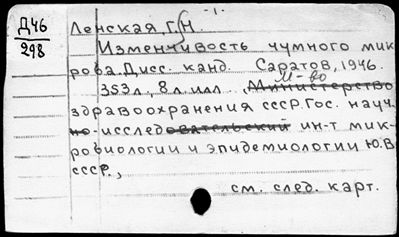 -1.-
Д46
298
Ленская, Г.Н.
Изменчивость чумного мик
роба. Дисс. канд. Саратов, 1946.
353л., 8л. илл. М-во
Министерство
здравоохранения СССР. Гос. науч.
но-исследовательский ин-т мик-
робиологии и эпидемиологии Ю.В
СССР.,
см. след. карт.